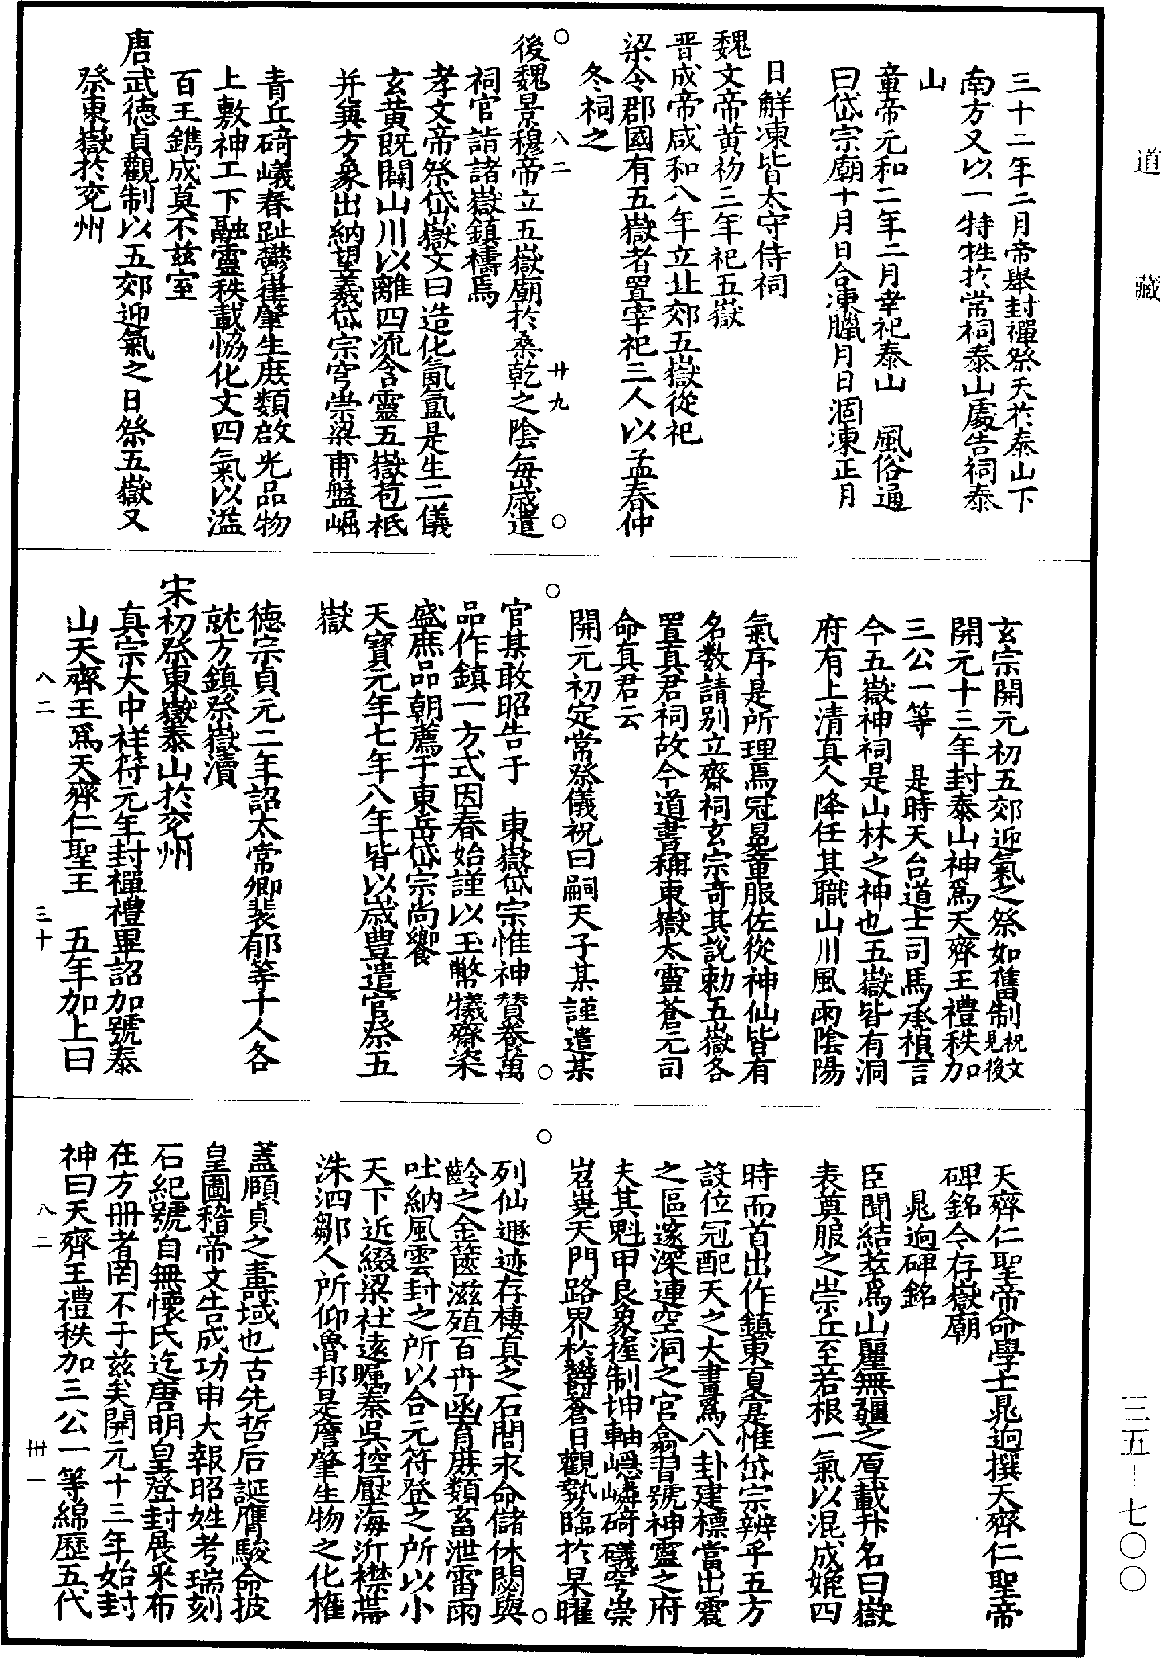 道藏
三十二年二月帝舉封禪祭天於泰山下
南方又以一特牲於常祠泰山處告祠泰
山
章帝元和二年二月幸祀泰山　風俗通
曰岱宗廟十月日合凍臘月日涸凍正月
日解凍皆太守侍祠
魏文帝黃初三年祀五嶽
晉成帝咸和八年立北郊五嶽從祀
梁令郡國有五嶽者置宰祀三人以孟春仲
冬祠之
八二　廿九
後魏景穆帝立五嶽廟於桑乾之陰每歲遣
祠官詣諸嶽鎮禱焉
孝文帝祭岱嶽文曰造化氤氳是生二儀
玄黃既闢山川以離四流含靈五嶽苞祇
并兾方象出納望羲岱宗穹崇梁甫盤崛
青丘碕嶬春趾鬱嵂肇生庶類啟光品物
上敷神工下融靈秩載恊化文四氣以溢
百王鐫成莫不兹室
唐武德貞觀制以五郊迎氣之日祭五嶽又
祭東嶽於兗州
玄宗開元初五郊迎氣之祭如舊制祝文見後
開元十三年封泰山神爲天齊王禮秩加
三公一等　是時天台道士司馬承楨言
今五嶽神祠是山林之神也五嶽皆有洞
府有上清真人降任其職山川風雨陰陽
氣序是所理焉冠冕章服佐從神仙皆有
名數請別立齋祠玄宗竒其說勅五嶽各
置真君祠故今道書稱東嶽太靈蒼元司
命真君云
開元初定常祭儀祝曰嗣天子某謹遣某
官某敢昭告于　東嶽岱宗惟神贊養萬
品作鎮一方式因春始謹以玉幣犧齋粢
盛庶品朝薦于東岳岱宗尚饗
天寶元年七年八年皆以歲豊遣官祭五
嶽
德宗貞元二年詔太常卿裴郁等十人各
就方鎮祭嶽瀆
宋初祭東嶽泰山於兗州
真宗大中祥符元年封禪禮畢詔加號泰
山天齊王爲天齊仁聖王　五年加上曰
八二　三十
天齊仁聖帝命學士晁迥撰天齊仁聖帝
碑銘今存嶽廟
晁迥碑銘
臣聞結莖爲山麗無疆之厚載升名曰嶽
表尊服之崇丘至若根一氣以混成媲四
時而首出作鎮東夏寔惟岱宗辨乎五方
設位冠配天之大畫爲八卦建標當出震
之區邃深連空洞之宫翕習號神靈之府
夫其魁甲艮象握制坤軸嶾嶙碕礒穹崇
岧嶤天門路界於鬱蒼日觀勢臨於杲曜
列仙遯迹存棲真之石閭求命儲休閟與
齡之金篋滋殖百卉函育庶類畜泄雷雨
吐納風雲封之所以合元符登之所以小
天下近綴梁社遠矚秦吳控壓海沂襟帶
洙泗鄒人所仰魯邦是詹肇生物之化權
蓋頤貞之壽域也古先哲后誕膺駿命披
皇圖稽帝文告成功申大報昭姓考瑞刻
石紀號自無懷氏迄唐明皇登封展采布
在方冊者罔不于兹矣開元十三年始封
神曰天齊王禮秩加三公一等綿歷五代
八二　卅一
三五—七〇〇